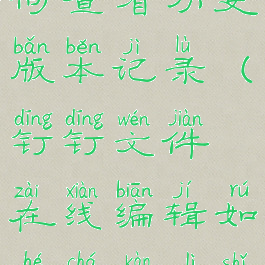 bǎn běn jì lù
版本记录（
dīng dīng wén jiàn
钉钉文件
zài xiàn biān jí rú
在线编辑如
hé chá kàn lì shǐ